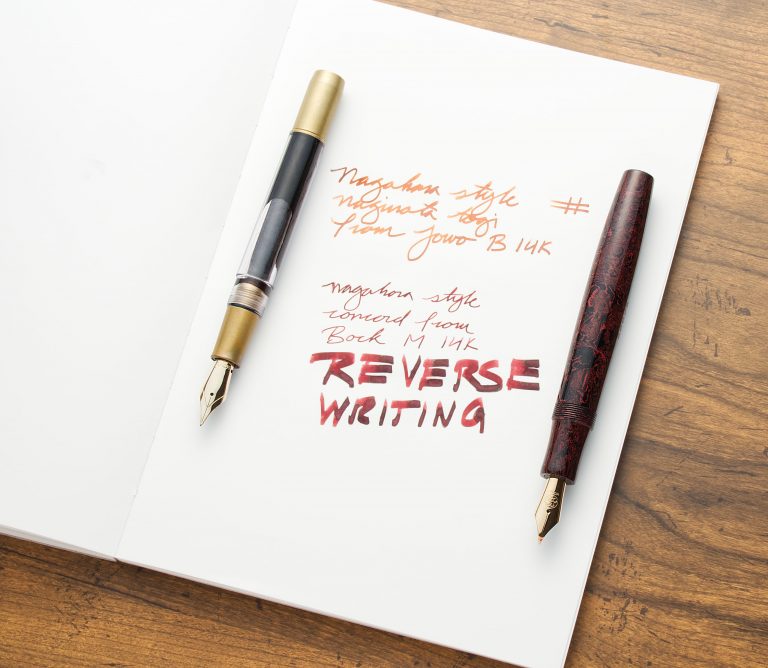 Nagahara style #
naginata togi
from Jowo B 14K
nagahara style
concord from
Bock M 14K
REVERSE
WRITING